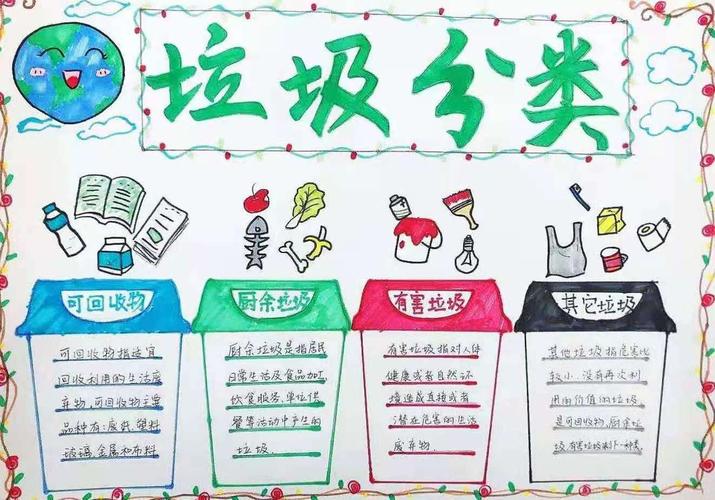 垃圾分类
可回收物
可回收物指适宜
回收利用的生活废
弃物,可回收物主要
品种有:废纸,塑料
玻璃,金属和布料
厨余垃圾
厨余垃圾是指居民
日常生活及食品加工,
饮食服务,单位供
餐等活动中产生的
垃圾.
有害垃圾
有害垃圾指对人体
健康或者自然环
境造成直接或者
潜在危害的生活
废弃物.
其它垃圾
其他垃圾指危害比
较小.没有再次利
用的价值的垃圾
是可回收物,厨余垃
圾,有害垃圾